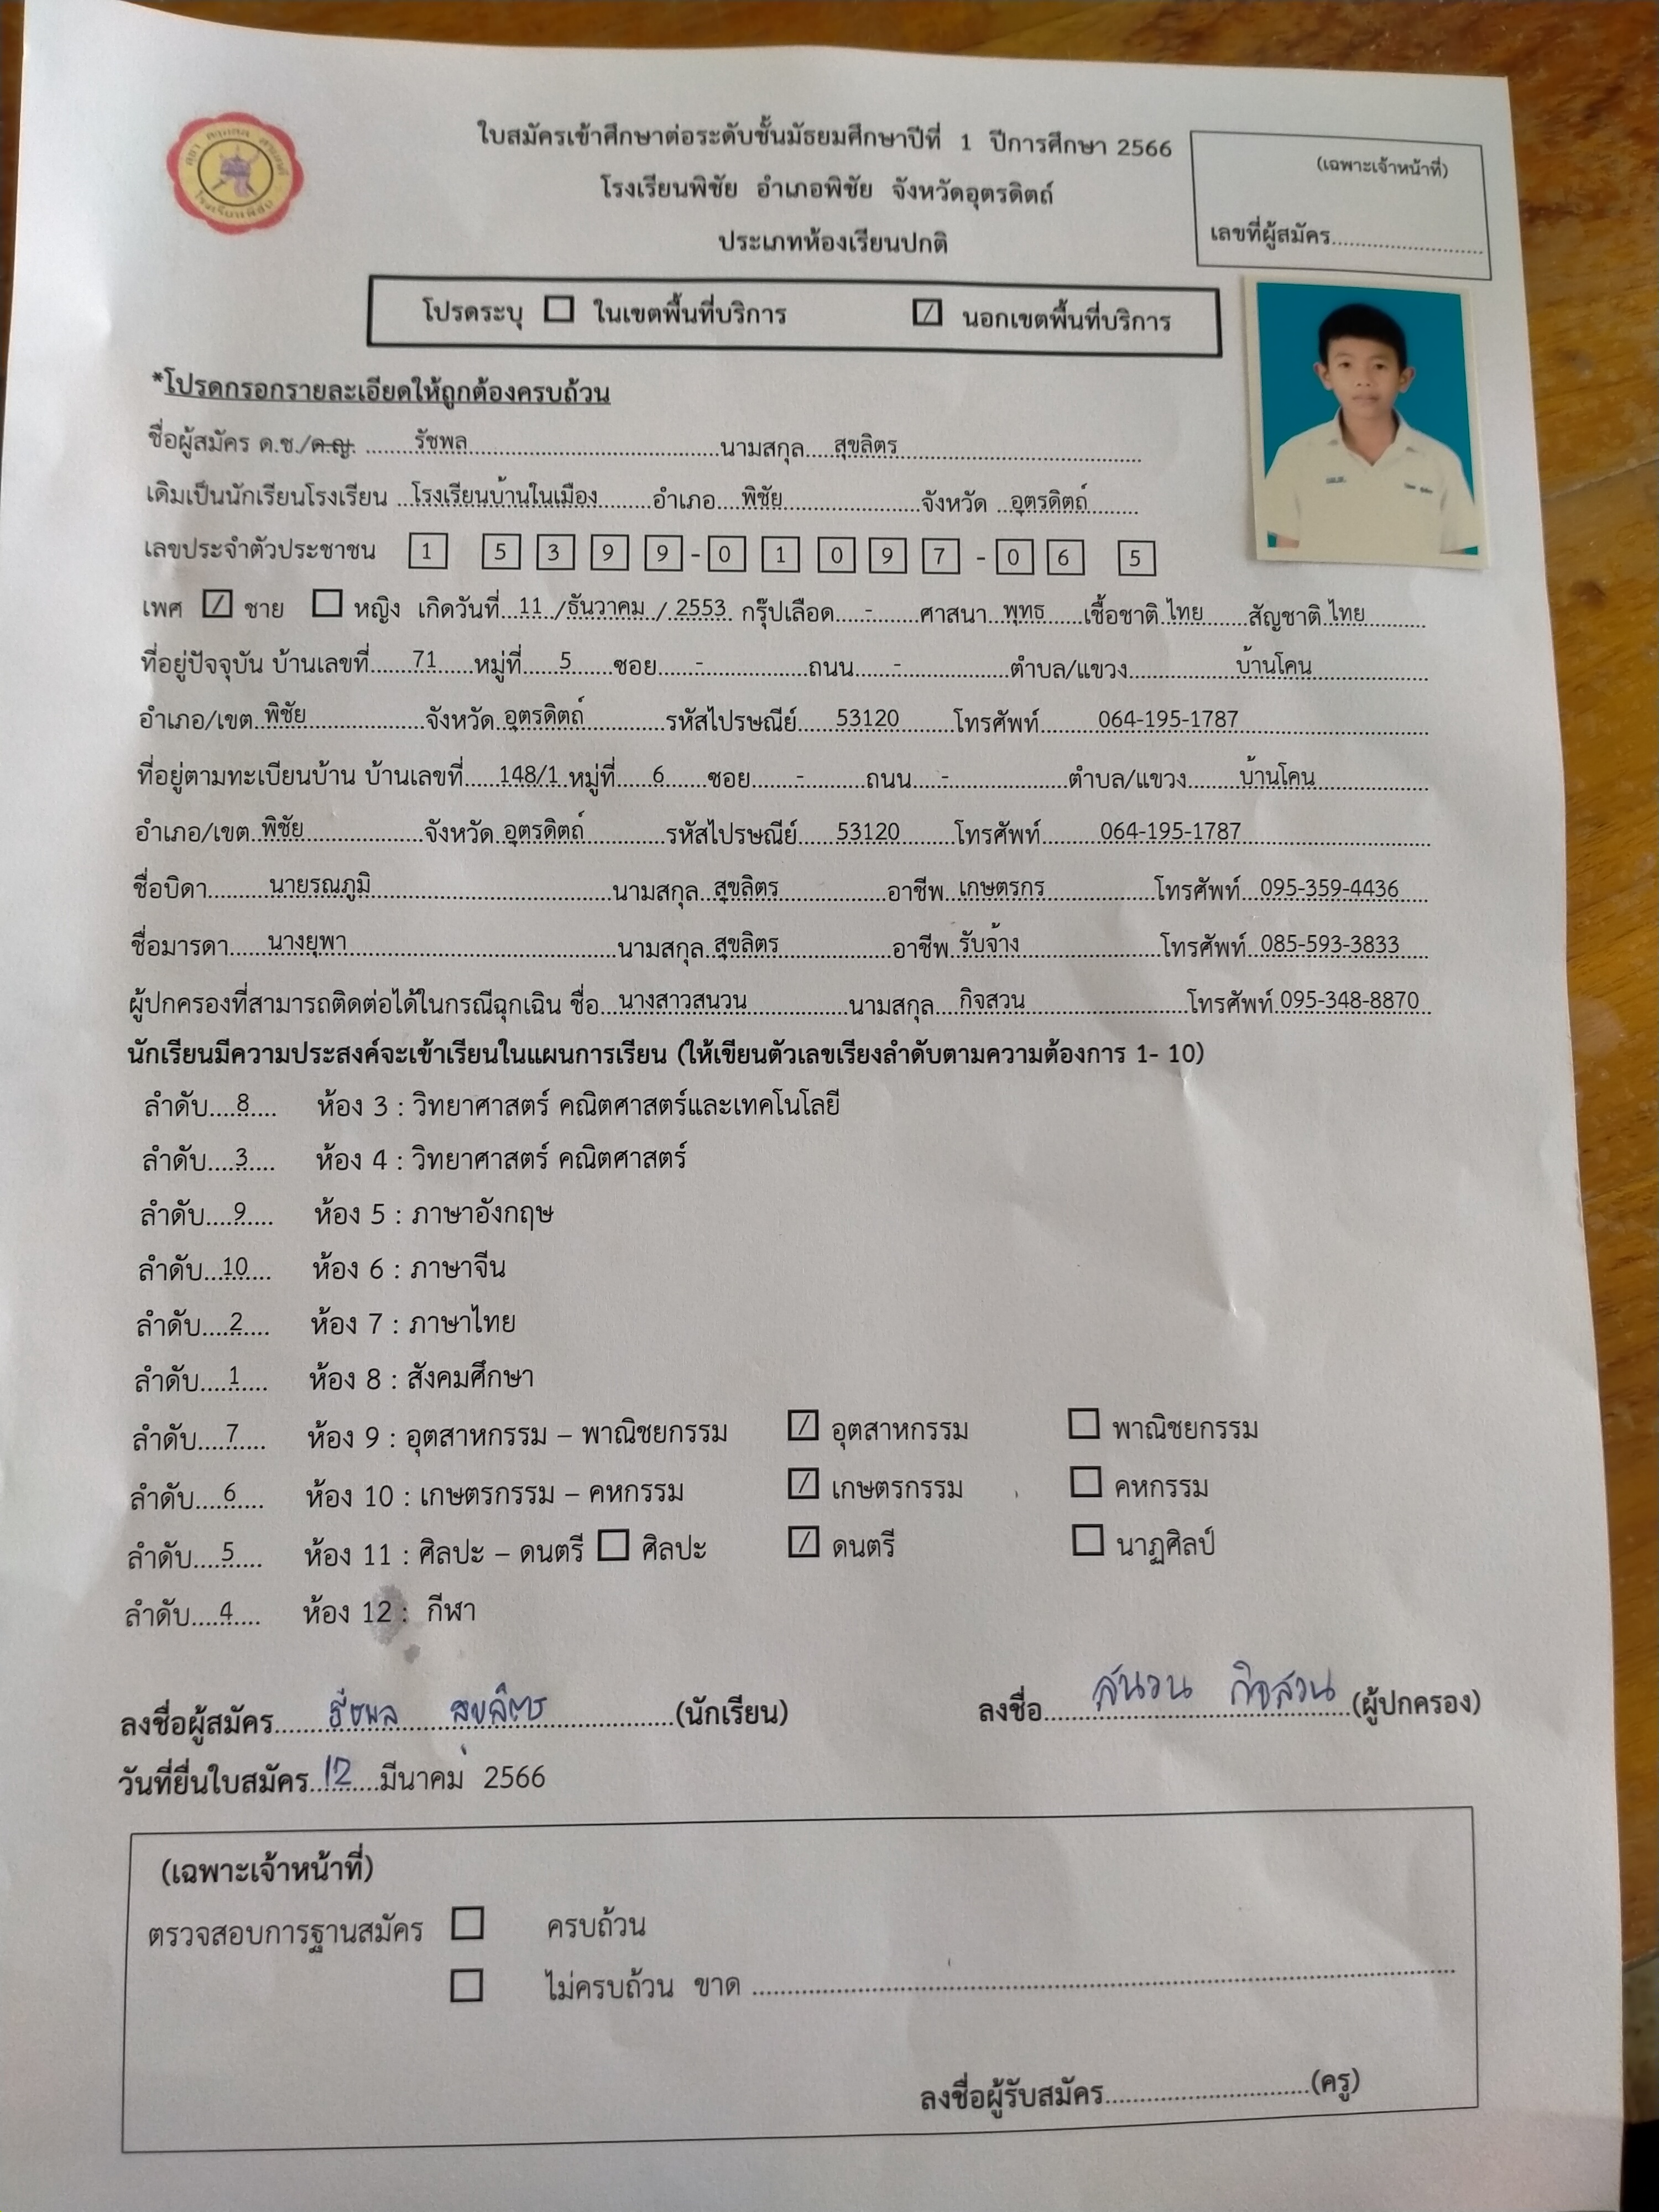 ใบสมัครเข้าศึกษาต่อระดับชั้นมัธยมศึกษาปีที่ 1 ปีการศึกษา 2566
โรงเรียนพิชัย อำเภอพิชัย จังหวัดอุตรดิตถ์
ประเภทห้องเรียนปกติ
(เฉพาะเจ้าหน้าที่)
เลขที่ผู้สมัคร
โปรดระบุ ☐ ในเขตพื้นที่บริการ ☑ นอกเขตพื้นที่บริการ
*โปรดกรอกรายละเอียดให้ถูกต้องครบถ้วน
ชื่อผู้สมัคร ด.ช./ด.ญ. รัชพล นามสกุล สุขลิตร
เดิมเป็นนักเรียนโรงเรียน โรงเรียนบ้านในเมือง อำเภอ พิชัย จังหวัด อุตรดิตถ์
เลขประจำตัวประชาชน 1 5 3 9 9 - 0 1 0 9 7 - 0 6 5
เพศ ☑ ชาย ☐ หญิง เกิดวันที่ 11 / ธันวาคม / 2553 กรุ๊ปเลือด - ศาสนา พุทธ เชื้อชาติ ไทย สัญชาติ ไทย
ที่อยู่ปัจจุบัน บ้านเลขที่ 71 หมู่ที่ 5 ซอย - ถนน - ตำบล/แขวง บ้านโคน
อำเภอ/เขต พิชัย จังหวัด อุตรดิตถ์ รหัสไปรษณีย์ 53120 โทรศัพท์ 064-195-1787
ที่อยู่ตามทะเบียนบ้าน บ้านเลขที่ 148/1 หมู่ที่ 6 ซอย - ถนน - ตำบล/แขวง บ้านโคน
อำเภอ/เขต พิชัย จังหวัด อุตรดิตถ์ รหัสไปรษณีย์ 53120 โทรศัพท์ 064-195-1787
ชื่อบิดา นายรณภูมิ นามสกุล สุขลิตร อาชีพ เกษตรกร โทรศัพท์ 095-359-4436
ชื่อมารดา นางยุพา นามสกุล สุขลิตร อาชีพ รับจ้าง โทรศัพท์ 085-593-3833
ผู้ปกครองที่สามารถติดต่อได้ในกรณีฉุกเฉิน ชื่อ นางสาวสนวน นามสกุล กิจสวน โทรศัพท์ 095-348-8870
นักเรียนมีความประสงค์จะเข้าเรียนในแผนการเรียน (ให้เขียนตัวเลขเรียงลำดับตามความต้องการ 1- 10)
ลำดับ 8 ห้อง 3 : วิทยาศาสตร์ คณิตศาสตร์และเทคโนโลยี
ลำดับ 3 ห้อง 4 : วิทยาศาสตร์ คณิตศาสตร์
ลำดับ 9 ห้อง 5 : ภาษาอังกฤษ
ลำดับ 10 ห้อง 6 : ภาษาจีน
ลำดับ 2 ห้อง 7 : ภาษาไทย
ลำดับ 1 ห้อง 8 : สังคมศึกษา
ลำดับ 7 ห้อง 9 : อุตสาหกรรม – พาณิชยกรรม ☑ อุตสาหกรรม ☐ พาณิชยกรรม
ลำดับ 6 ห้อง 10 : เกษตรกรรม – คหกรรม ☑ เกษตรกรรม ☐ คหกรรม
ลำดับ 5 ห้อง 11 : ศิลปะ – ดนตรี ☐ ศิลปะ ☑ ดนตรี ☐ นาฏศิลป์
ลำดับ 4 ห้อง 12 : กีฬา
ลงชื่อผู้สมัคร รัชพล สุขลิตร (นักเรียน) ลงชื่อ สนวน กิจสวน (ผู้ปกครอง)
วันที่ยื่นใบสมัคร 12 มีนาคม 2566
(เฉพาะเจ้าหน้าที่)
ตรวจสอบการฐานสมัคร ☐ ครบถ้วน
☐ ไม่ครบถ้วน ขาด
ลงชื่อผู้รับสมัคร (ครู)